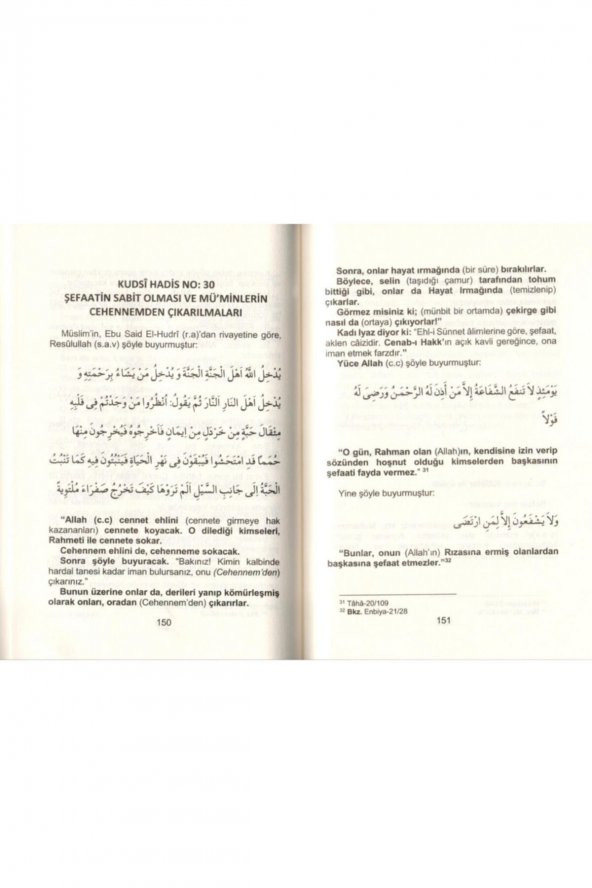 KUDSÎ HADİS NO: 30
ŞEFAATİN SABİT OLMASI VE MÜ'MİNLERİN
CEHENNEMDEN ÇIKARILMALARI
Müslim'in, Ebu Said El-Hudrî (r.a)'dan rivayetine göre,
Resûlullah (s.a.v) şöyle buyurmuştur:
يُدْخِلُ اللَّهُ أَهْلَ الْجَنَّةِ الْجَنَّةَ وَ يُدْخِلُ مَنْ يَشَاءُ بِرَحْمَتِهِ وَ
يُدْخِلُ أَهْلَ النَّارِ النَّارَ ثُمَّ يَقُولُ: اُنْظُرُوا مَنْ وَجَدْتُمْ فِى قَلْبِهِ
مِثْقَالَ حَبَّةٍ مِنْ خَرْدَلٍ مِنْ اِيمَانٍ فَاَخْرِجُوهُ فَيُخْرَجُونَ مِنْهَا
حُمَمًا قَدِ امْتَحَشُوا فَيُبْقَوْنَ فِى نَهْرِ الْحَيَاةِ فَيَنْبُتُونَ فِيهِ كَمَا تَنْبُتُ
الْحَبَّةُ إِلَى جَانِبِ السَّيْلِ أَلَمْ تَرَوْهَا كَيْفَ تَخْرُجُ صَفْرَاءَ مُلْتَوِيةً
"Allah (c.c) cennet ehlini (cennete girmeye hak
kazananları) cennete koyacak. O dilediği kimseleri,
Rahmeti ile cennete sokar.
Cehennem ehlini de, cehenneme sokacak.
Sonra şöyle buyuracak. "Bakınız! Kimin kalbinde
hardal tanesi kadar iman bulursanız, onu (Cehennem'den)
çıkarınız."
Bunun üzerine onlar da, derileri yanıp kömürleşmiş
olarak onları, oradan (Cehennem'den) çıkarırlar.
150
Sonra, onlar hayat ırmağında (bir süre) bırakılırlar.
Böylece, selin (taşıdığı çamur) tarafından tohum
bittiği gibi, onlar da Hayat Irmağında (temizlenip)
çıkarlar.
Görmez misiniz ki; (münbit bir ortamda) çekirge gibi
nasıl da (ortaya) çıkıyorlar!"
Kadı Iyaz diyor ki: "Ehl-i Sünnet âlimlerine göre, şefaat,
aklen câizidir. Cenab-ı Hakk'ın açık kavli gereğince, ona
iman etmek farzdır."
Yüce Allah (c.c) şöyle buyurmuştur:
يَوْمَئِذٍ لاَ تَنْفَعُ الشَّفَاعَةُ إِلاَّ مَنْ أَذِنَ لَهُ الرَّحْمَنُ وَرَضِىَ لَهُ
قَوْلاً
"O gün, Rahman olan (Allah)ın, kendisine izin verip
sözünden hoşnut olduğu kimselerden başkasının
şefaati fayda vermez." 31
Yine şöyle buyurmuştur:
وَلاَ يَشْفَعُونَ إِلاَّ لِمَنِ ارْتَضَى
"Bunlar, onun (Allah'ın) Rızasına ermiş olanlardan
başkasına şefaat etmezler."32
31 Tâhâ-20/109
32 Bkz. Enbiya-21/28
151